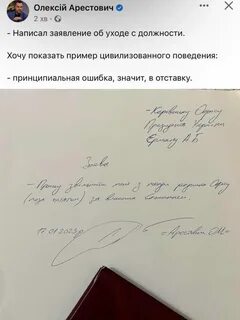 Олексій Арестович
2 хв
- Написал заявление об уходе с должности.
Хочу показать пример цивилизованного поведения:
- принципиальная ошибка, значит, в отставку.
- Керівнику Офісу
Президента України
Єрмаку А Б
Заява
- Прошу звільнити мене з посади радника Офісу
(поза штатом) за власним бажанням.
17.01.2023р
- Арестович О.М -